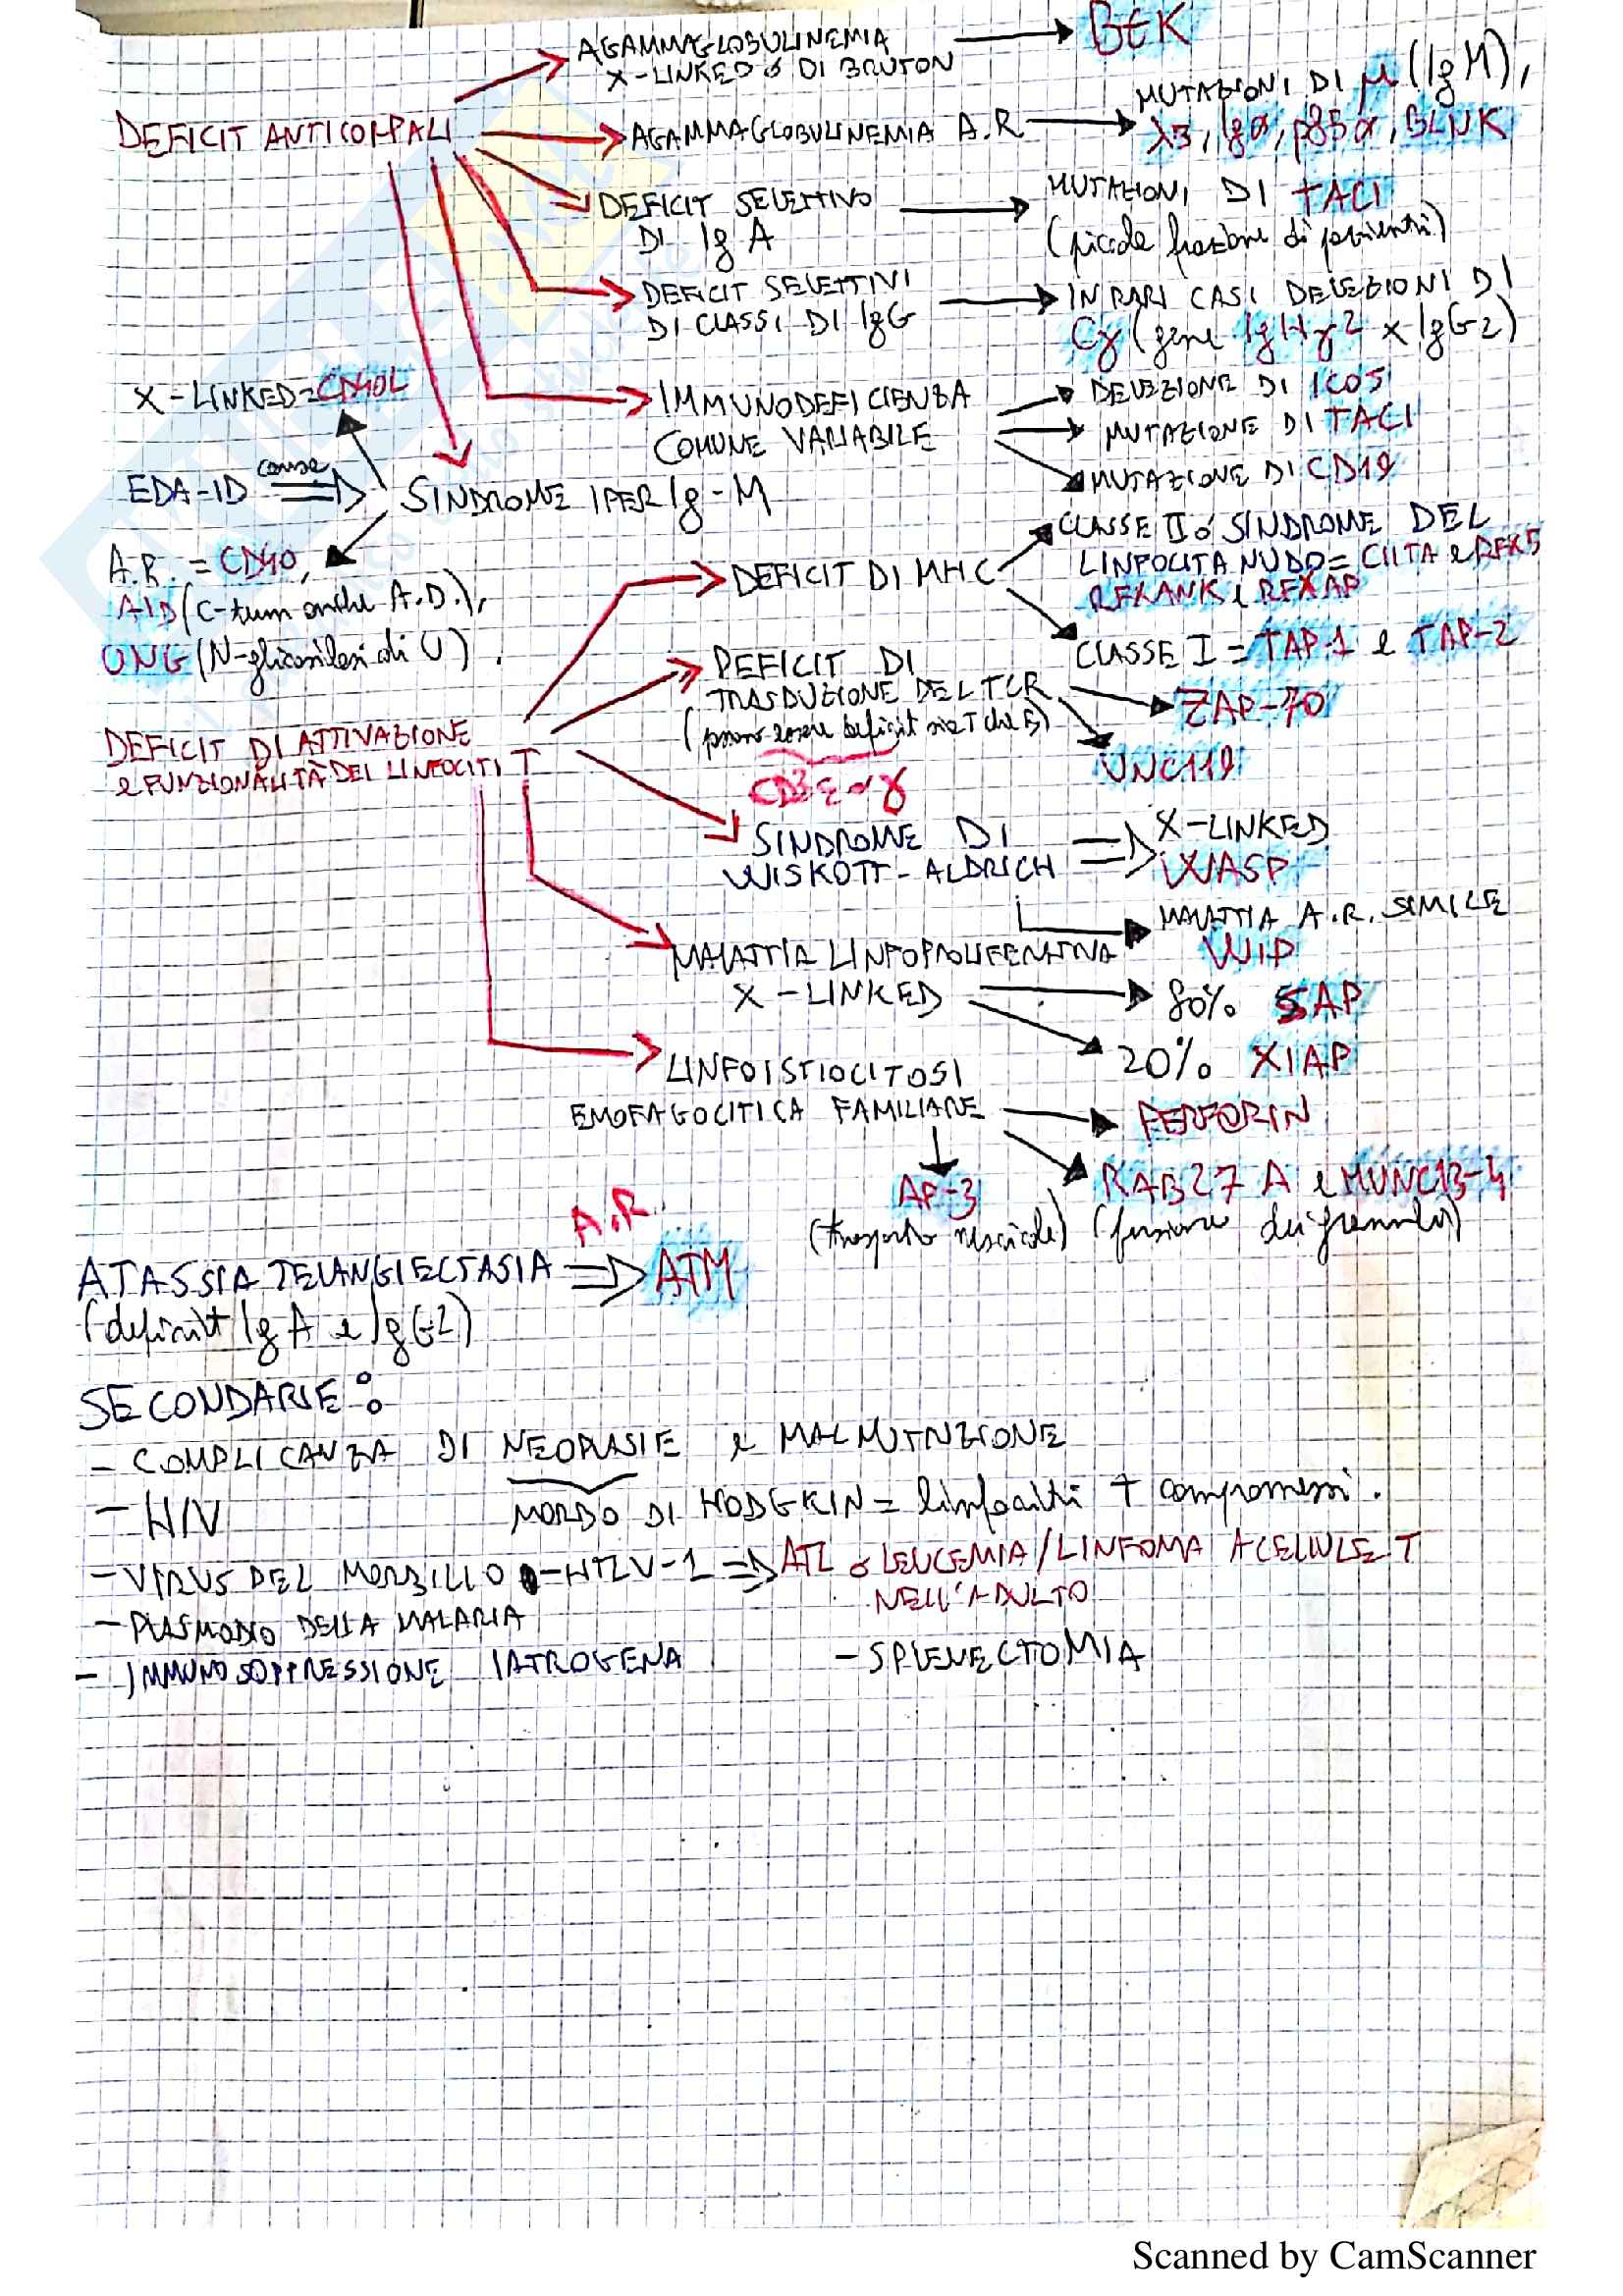 AGAMMAGLOBULINEMIA
X-LINKED o DI BRUTON
BtK
DEFICIT ANTICORPALI
AGAMMAGLOBULINEMIA A.R
MUTAZIONI DI μ (IgM),
λ5, Igα, p85α, BLNK
DEFICIT SELETTIVO
DI IgA
MUTAZIONI DI TACI
(piccola frazione di pazienti)
DEFICIT SELETTIVI
DI CLASSI DI IgG
IN RARI CASI DELEZIONI DI
Cγ (gene IgHγ2 x IgG2)
X-LINKED=CD40L
IMMUNODEFICIENZA
COMUNE VARIABILE
DELEZIONE DI ICOS
MUTAZIONE DI TACI
MUTAZIONE DI CD19
EDA-ID causa
SINDROME IPER Ig-M
A.R. = CD40,
AID (C-term anche A.D.),
UNG (N-glicosilasi di U).
DEFICIT DI MHC
CLASSE II o SINDROME DEL
LINFOCITA NUDO= CIITA e RFX5
RFXANK e RFXAP
CLASSE I = TAP-1 e TAP-2
DEFICIT DI
TRASDUZIONE DEL TCR
(possono essere deficit sia T che B)
CD3 ε o γ
ZAP-70
UNC119
DEFICIT DI ATTIVAZIONE
e FUNZIONALITÀ DEI LINFOCITI T
SINDROME DI
WISKOTT-ALDRICH
X-LINKED
WASP
MALATTIA A.R. SIMILE
WIP
MALATTIA LINFOPROLIFERATIVA
X-LINKED
80% SAP
20% XIAP
LINFOISTIOCITOSI
EMOFAGOCITICA FAMILIARE
PERFORIN
RAB27A e MUNC13-4
(fusione dei granuli)
AP-3
(trasporto vescicole)
A.R.
ATASSIA TELANGIECTASIA
ATM
(deficit IgA e IgG2)
SECONDARIE:
- COMPLICANZA DI NEOPLASIE e MALNUTRIZIONE
MORBO DI HODGKIN = linfociti T compromessi.
- HIV
- VIRUS DEL MORBILLO
- HTLV-1 => ATL o LEUCEMIA/LINFOMA A CELLULE T
NELL'ADULTO
- PLASMODIO DELLA MALARIA
- IMMUNOSOPPRESSIONE IATROGENA
- SPLENECTOMIA
Scanned by CamScanner